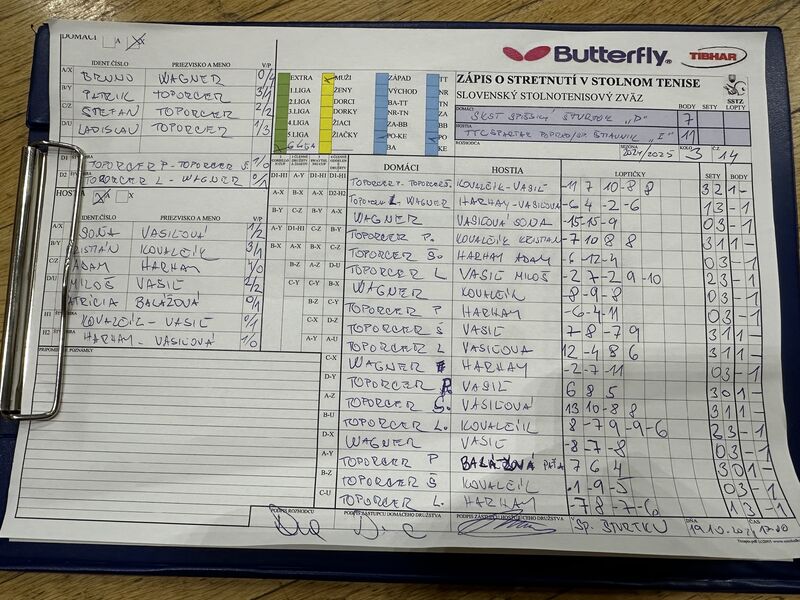 DOMÁCI A X
Butterfly
TIBHAR
IDENT.ČÍSLO PRIEZVISKO A MENO V/P
A/X BRUNO WAGNER 0/4
B/Y PATRIK TOPORCER 3/1
C/Z ŠTEFAN TOPORCER 2/2
D/U LADISLAV TOPORCER 1/3
D1 TOPORCER P-TOPORCER Š. 1/0
D2 TOPORCER L - WAGNER 0/1
EXTRA MUŽI ZÁPAD TT
1.LIGA ŽENY VÝCHOD BR
2.LIGA DORCI BA-TT TN
3.LIGA DORKY TN-NR NR
4.LIGA ŽIACI ZA-BB ZA
5.LIGA ŽIAČKY PO-KE BB
6.LIGA BA PO
KE
ZÁPIS O STRETNUTÍ V STOLNOM TENISE
SLOVENSKÝ STOLNOTENISOVÝ ZVÄZ
SSTZ
DOMÁCI BODY SETY LOPTY
ŠKST SPIŠSKÝ ŠTVRTOK "D" 7
HOSTIA
TTC SPARTAK POPRAD/SP. ŠTIAVNIK "I" 11
ROZHODCA SEZÓNA 2024/2025 KOLO 3 Č.Z. 14
HOSTIA A X
IDENT.ČÍSLO PRIEZVISKO A MENO V/P
A/X SOŇA VASIĽOVÁ 1/2
B/Y KRISTIAN KOVALČÍK 3/1
C/Z ADAM HARHAY 4/0
D/U MILOŠ VASIĽ 2/2
PATRÍCIA BALÁŽOVÁ 0/1
H1 KOVALČÍK - VASIĽ 0/1
H2 HARHAY - VASIĽOVÁ 1/0
PRIPOMIENKY, POZNÁMKY
DOMÁCI HOSTIA LOPTIČKY SETY BODY
D1-H1 TOPORCER P. - TOPORCER Š. KOVALČÍK-VASIĽ -11 7 10 -8 8 3 2 1 -
D2-H2 TOPORCER L - WAGNER HARHAY-VASIĽOVÁ -6 4 -2 -6 1 3 - 1
WAGNER VASIĽOVÁ SOŇA -15 -15 -9 0 3 - 1
TOPORCER P. KOVALČÍK KRISTIAN -7 10 8 8 3 1 1 -
TOPORCER Š. HARHAY ADAM -6 -12 -4 0 3 - 1
TOPORCER L VASIĽ MILOŠ -2 7 -2 9 -10 2 3 - 1
WAGNER KOVALČÍK -8 -9 -8 0 3 - 1
TOPORCER P HARHAY -6 -4 -11 0 3 - 1
TOPORCER Š VASIĽ 7 -8 -7 9 3 1 1 -
TOPORCER L VASIĽOVÁ 12 -4 8 6 3 1 1 -
C-X WAGNER HARHAY -2 -7 -11 0 3 - 1
D-Y TOPORCER P. VASIĽ 6 8 5 3 0 1 -
A-Z TOPORCER Š. VASIĽOVÁ 13 10 -8 8 3 1 1 -
B-U TOPORCER L. KOVALČÍK 8 -7 9 -9 -6 2 3 - 1
D-X WAGNER VASIĽ -8 -7 -8 0 3 - 1
A-Y TOPORCER P BALÁŽOVÁ 7 6 4 3 0 1 -
B-Z TOPORCER Š KOVALČÍK -1 -9 -5 0 3 - 1
C-U TOPORCER L. HARHAY -7 8 -7 -6 1 3 - 1
PODPIS ROZHODCU PODPIS ZÁSTUPCU DOMÁCEHO DRUŽSTVA PODPIS ZÁSTUPCU HOSŤUJÚCEHO DRUŽSTVA V SP. ŠTVRTKU DŇA 19.10.2024 ČAS 17:00